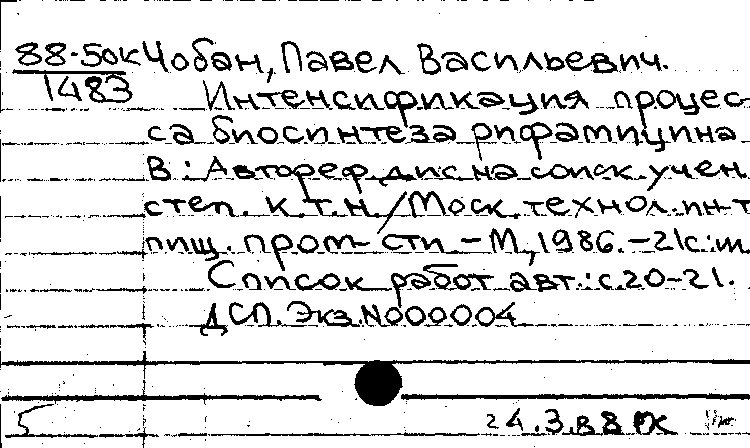 88-50к Чобан, Павел Васильевич.
1483 Интенсификация процес-
са биосинтеза рифамицина
В: Автореф.дис.на соиск.учен.
степ. к.т.н./Моск.технол.ин-т
пищ. пром-сти.-М,1986.-21с:ил.
Список работ авт.:с.20-21.
ДСП. Экз.N000004
5 24.3.88